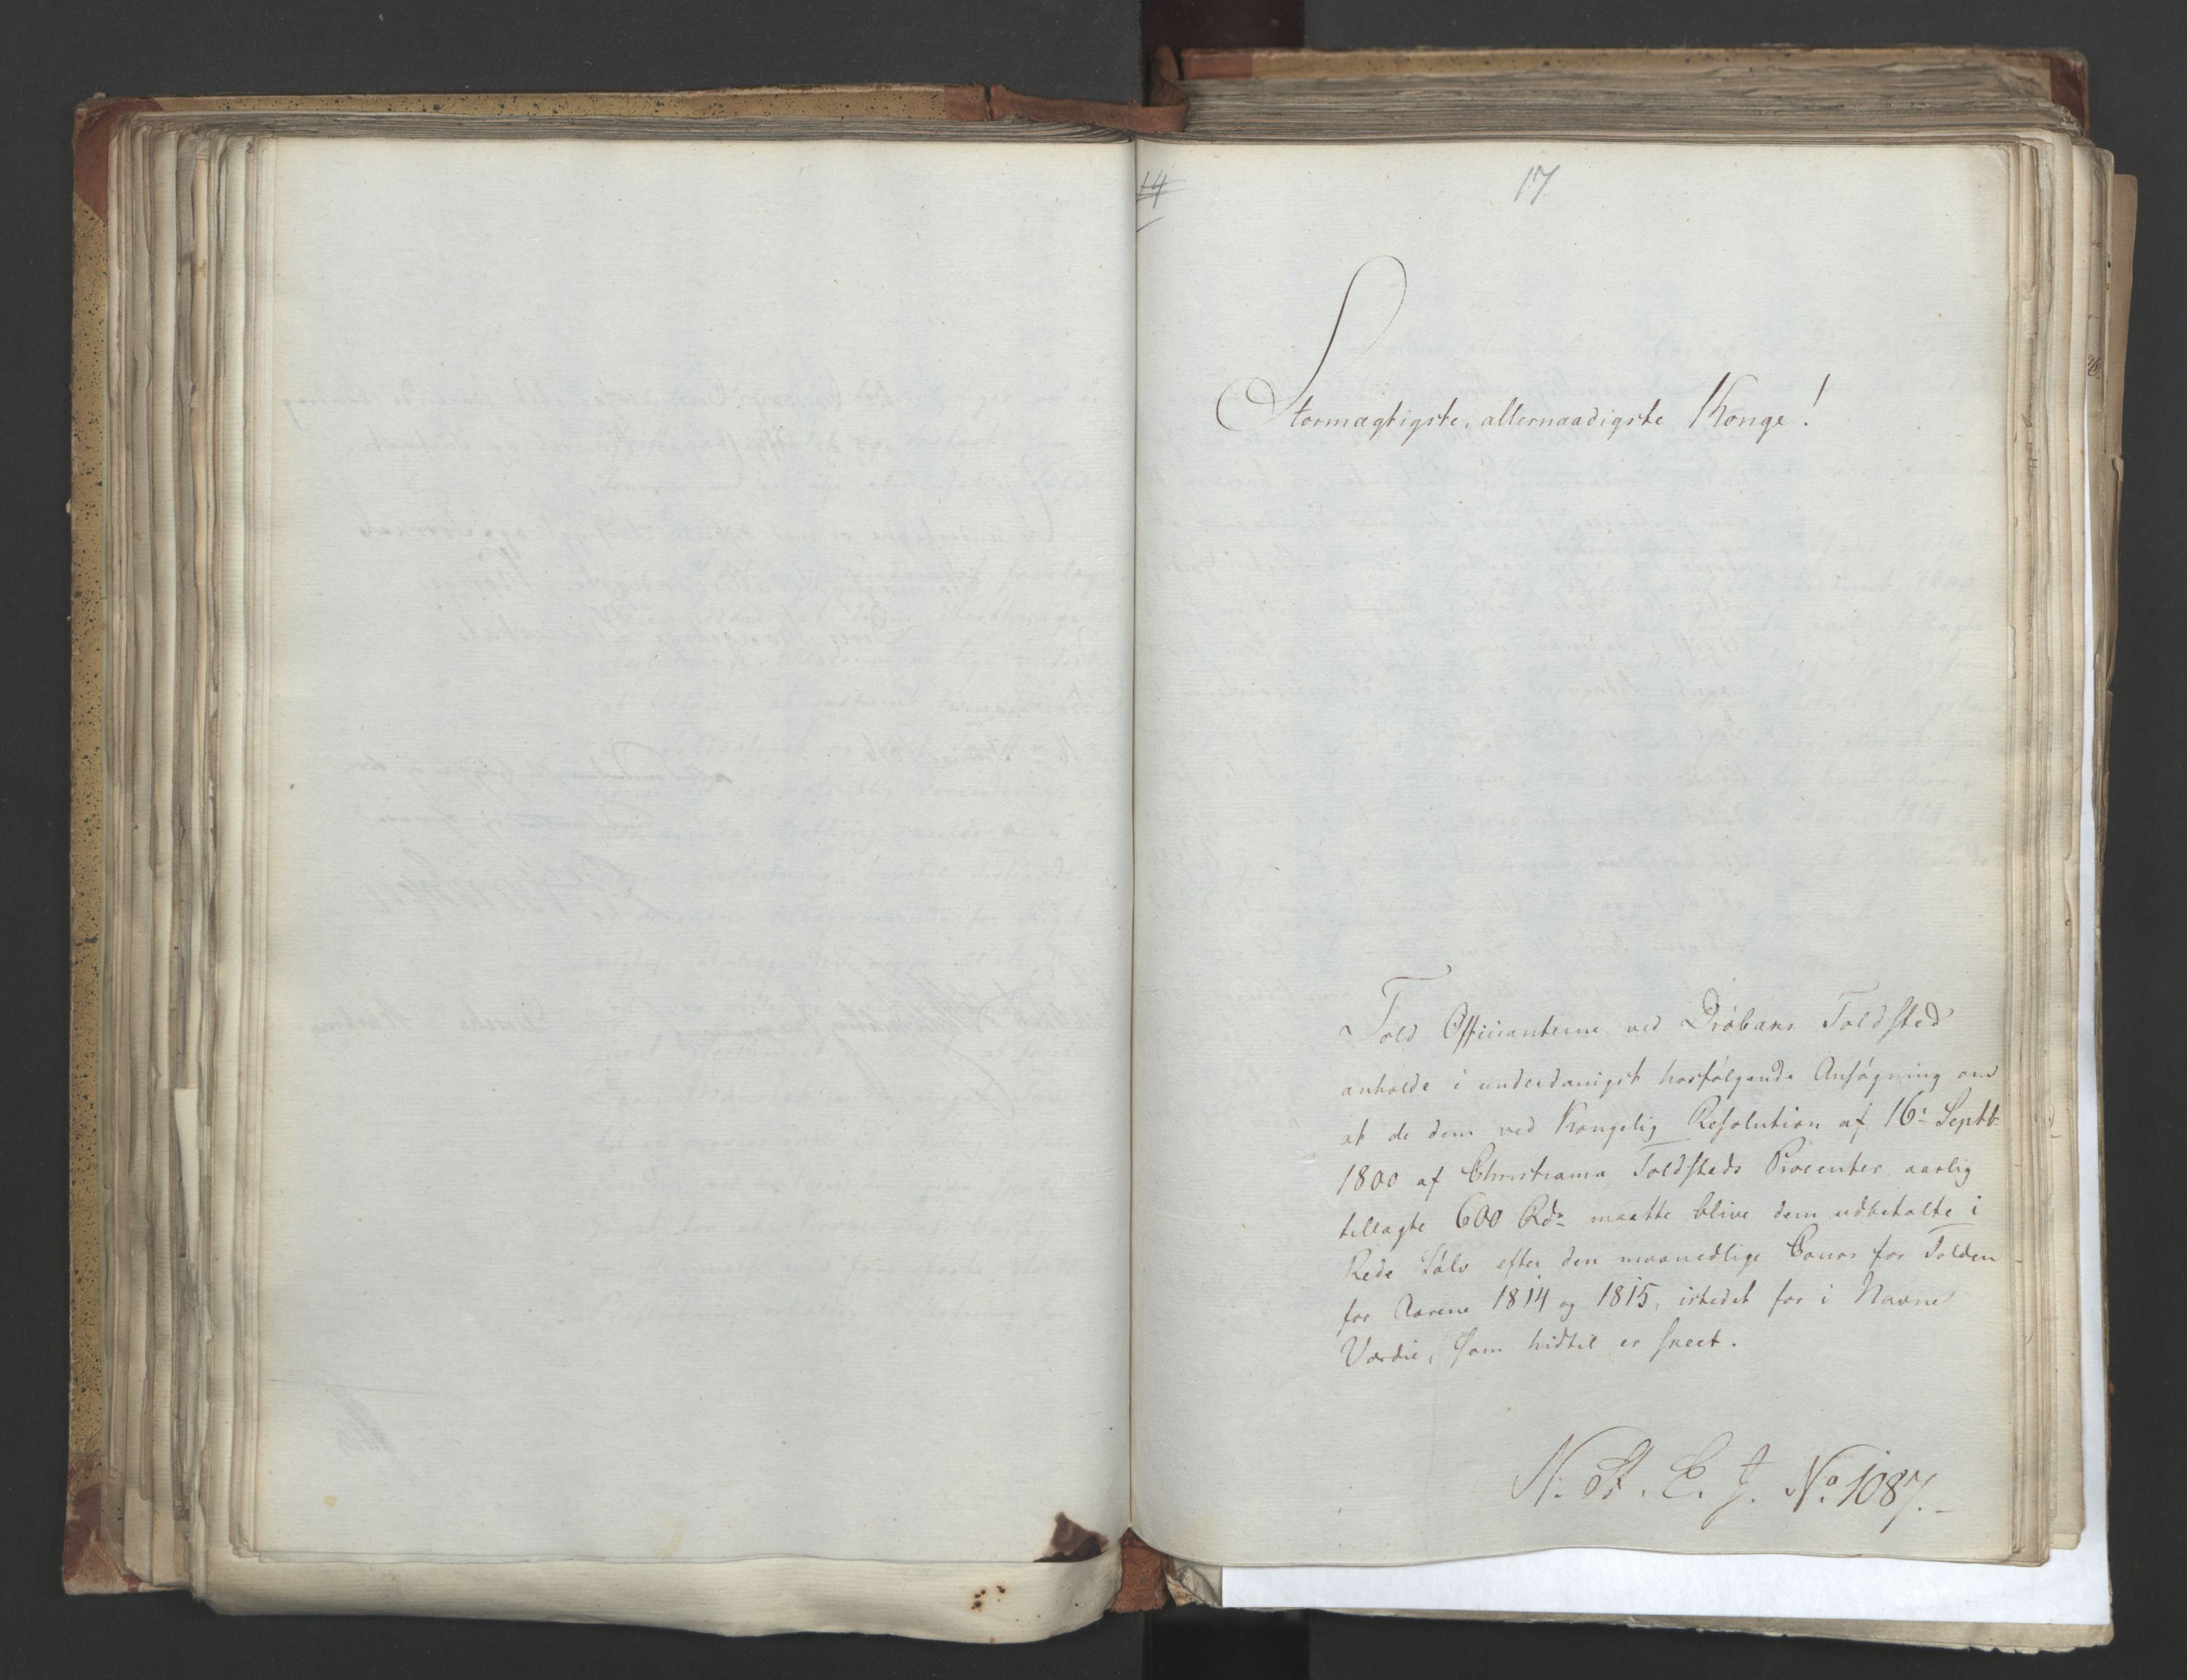 14
17
Stormægtigste, allernaadigste Konge!
Told Officianterne ved Drøbaks Toldsted
anholde i underdanigst hosfølgende Ansøgning om
at de dem ved Kongelig Resolution af 16de Septb.
1800 af Christiania Toldsteds Procenter aarlig
tillagte 600 Rdr maatte blive dem udbetalte i
Rede Sølv efter den maanedlige Cours for Tolden
for Aarene 1814 og 1815, istedet for i Navne
Værdie, som hidtil er skeet.
N. St. C. J. No. 1087.-